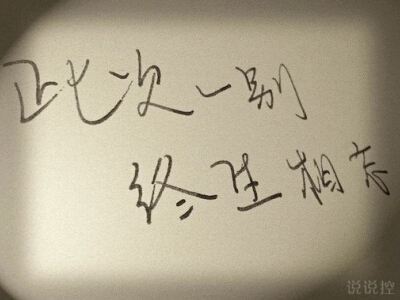 此次一别
终生相忘
说说控